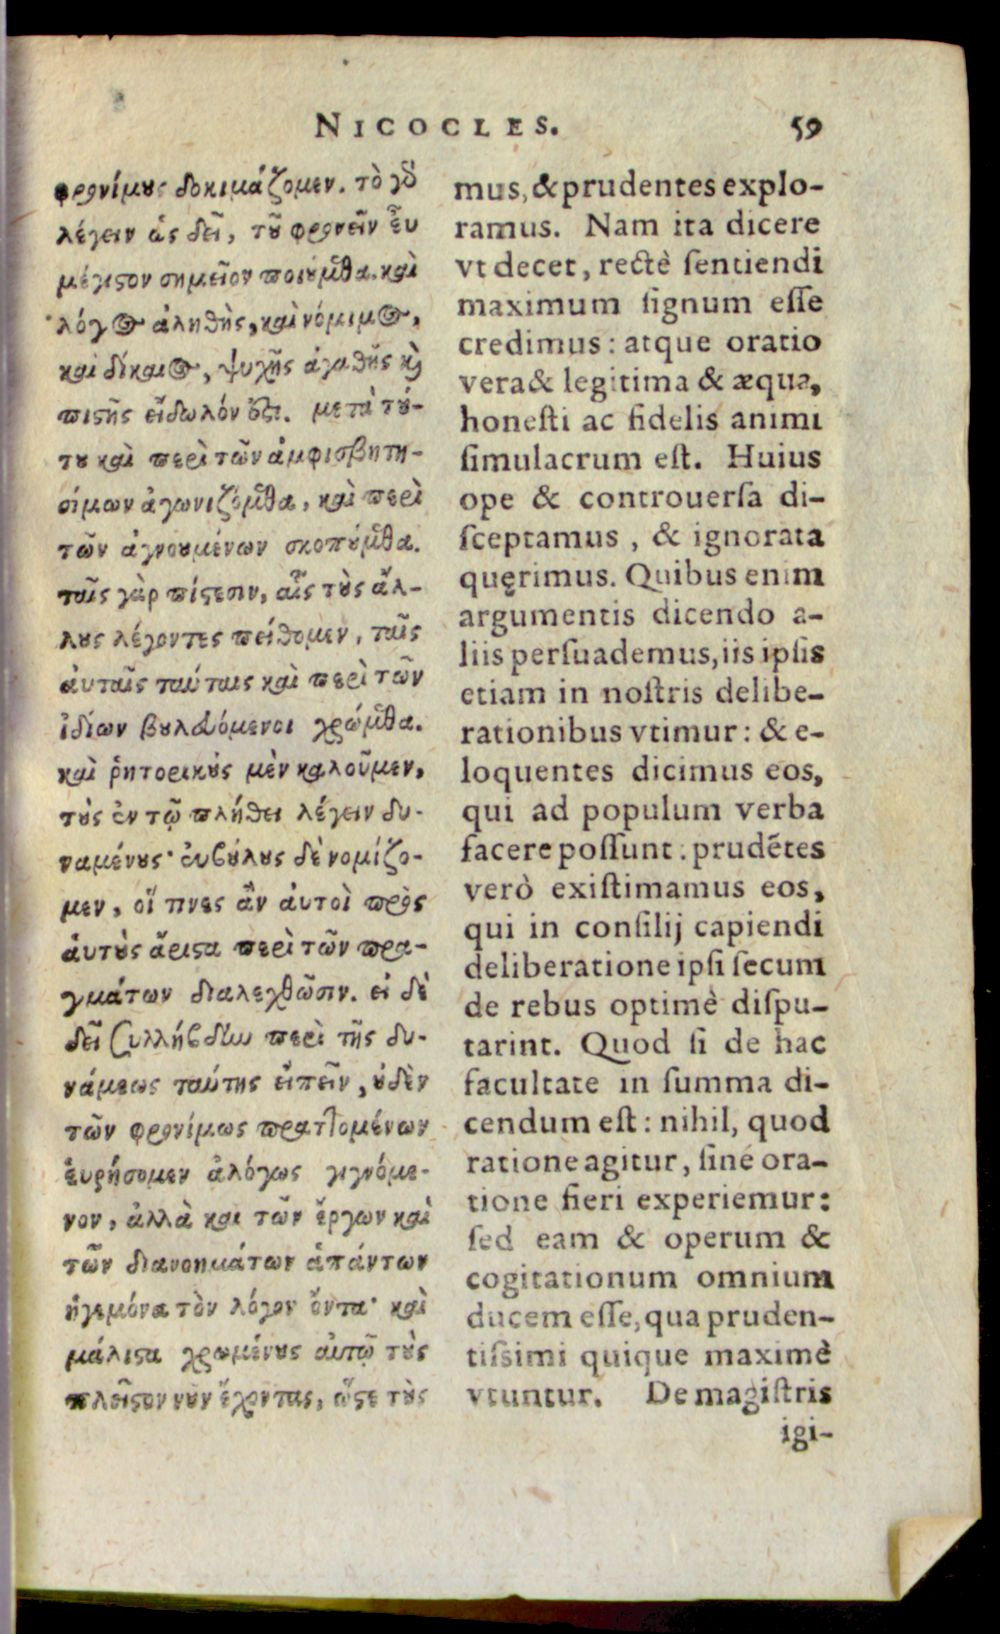 NICOCLES. 59
φρονίμους δοκιμάζομεν. τὸ γὸ
λέγειν ὡς δεῖ, τοῦ φρονεῖν εὖ
μέγιστον σημεῖον ποιούμεθα. καὶ
λόγος ἀληθὴς, καὶ νόμιμος,
καὶ δίκαιος, ψυχῆς ἀγαθῆς καὶ
πιστῆς εἴδωλόν ὅστι. μετὰ τού-
του καὶ περὶ τῶν ἀμφισβητη-
σίμων ἀγωνιζόμεθα, καὶ περὶ
τῶν ἀγνουμένων σκοπούμεθα.
ταῖς γὰρ πίστεσιν, αἷς τοὺς ἄλ-
λους λέγοντες πείθομεν, ταῖς
αὐταῖς ταύταις καὶ περὶ τῶν
ἰδίων βουλευόμενοι χρώμεθα.
καὶ ῥητορικοὺς μὲν καλοῦμεν,
τοὺς ἐν τῷ πλήθει λέγειν δυ-
ναμένους· εὐβούλους δὲ νομίζο-
μεν, οἵ τινες ἂν αὐτοὶ πρὸς
αὑτοὺς ἄριστα περὶ τῶν πρα-
γμάτων διαλεχθῶσιν. εἰ δὲ
δεῖ συλλήβδην περὶ τῆς δυ-
νάμεως ταύτης εἰπεῖν, οὐδὲν
τῶν φρονίμως πραττομένων
εὑρήσομεν ἀλόγως γιγνόμε-
νον, ἀλλὰ και τῶν ἔργων καὶ
τῶν διανοημάτων ἁπάντων
ἡγεμόνα τὸν λόγον ὄντα· καὶ
μάλιστα χρωμένους αὐτῷ τοὺς
πλεῖστον νοῦν ἔχοντας, ὥστε τοὺς
mus, & prudentes explo-
ramus. Nam ita dicere
vt decet, rectè ſentiendi
maximum ſignum eſſe
credimus: atque oratio
vera & legitima & æqua,
honeſti ac fidelis animi
ſimulacrum eſt. Huius
ope & controuerſa di-
ſceptamus, & ignorata
quęrimus. Quibus enim
argumentis dicendo a-
liis perſuademus, iis ipſis
etiam in noſtris delibe-
rationibus vtimur: & e-
loquentes dicimus eos,
qui ad populum verba
facere poſſunt. prudẽtes
verò exiſtimamus eos,
qui in conſilij capiendi
deliberatione ipſi ſecum
de rebus optimè diſpu-
tarint. Quod ſi de hac
facultate in ſumma di-
cendum eſt: nihil, quod
ratione agitur, ſine ora-
tione fieri experiemur:
ſed eam & operum &
cogitationum omnium
ducem eſſe, qua pruden-
tiſsimi quique maximè
vtuntur. De magiſtris
igi-